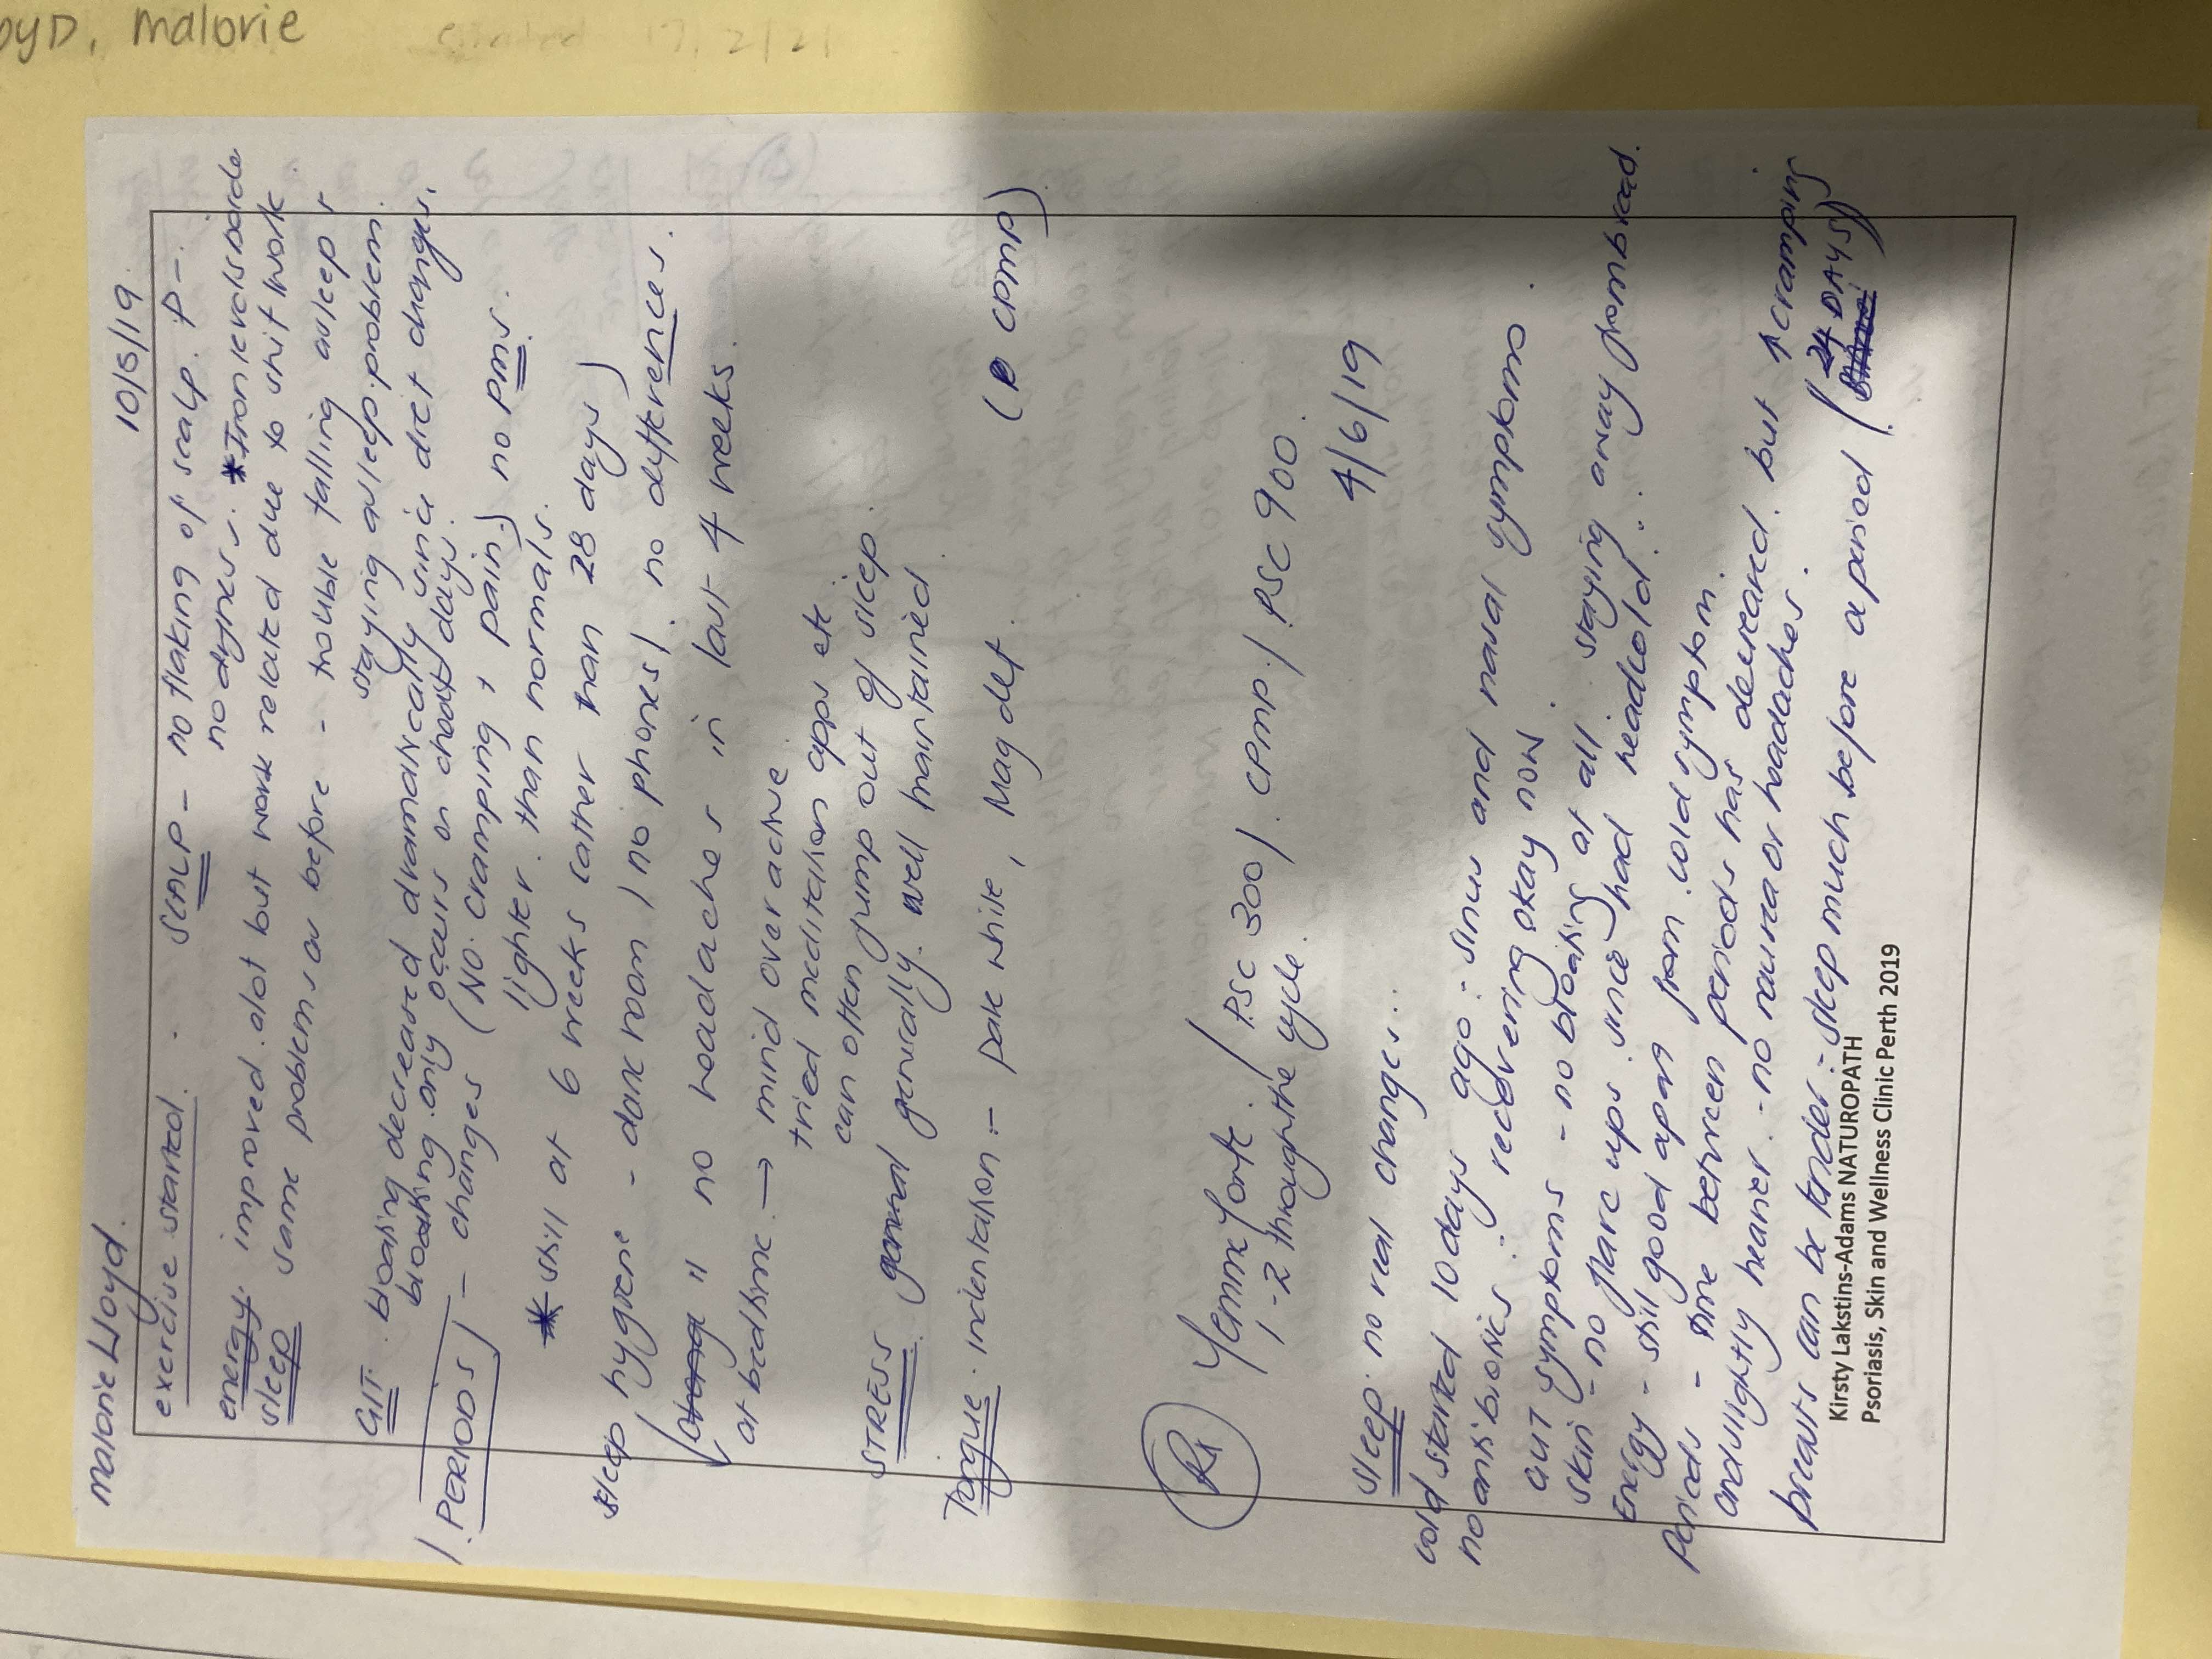 OYD, malorie
17, 2/21
malorie Lloyd. 10/5/19
exercise started. SCALP - no flaking of scalp. P-.
no dryness. *Iron levels borde
energy. improved alot but work related due to shif work
sleep same problems as before - trouble falling asleep
staying asleep problem.
GIT. bloating decreased dramatically since diet changes.
bloating only occurs on cheat days.
PERIODS - changes (NO cramping + pain) no PMS.
lighter. than normals.
* still at 6 weeks rather than 28 days)
sleep hygiene - dark room / no phones / no differences.
at bedtime. " no headaches in last 4 weeks.
→ mind over active
tried meditation apps etc
can often jump out of sleep.
STRESS general generally. well maintained
Tongue. indentation - pale white, Mag def. ( CPMP)
Rx Femme Forte. / PSC 300 / CPMP / PSC 900.
1-2 through the cycle.
4/6/19
Sleep no real changes...
cold started 10 days ago - sinus and nasal symptoms
no antibiotics : recovering okay now.
GUT symptoms - no bloating at all. staying away from bread.
skin - no flare ups since had headcold.
Energy - still good apart from cold symptom.
Periods - time between periods has decreased. but ↑ cramping
and slightly heavier. - no nausea or headaches. (24 DAYS)
breasts can be tender - sleep much before a period
Kirsty Lakstins-Adams NATUROPATH
Psoriasis, Skin and Wellness Clinic Perth 2019